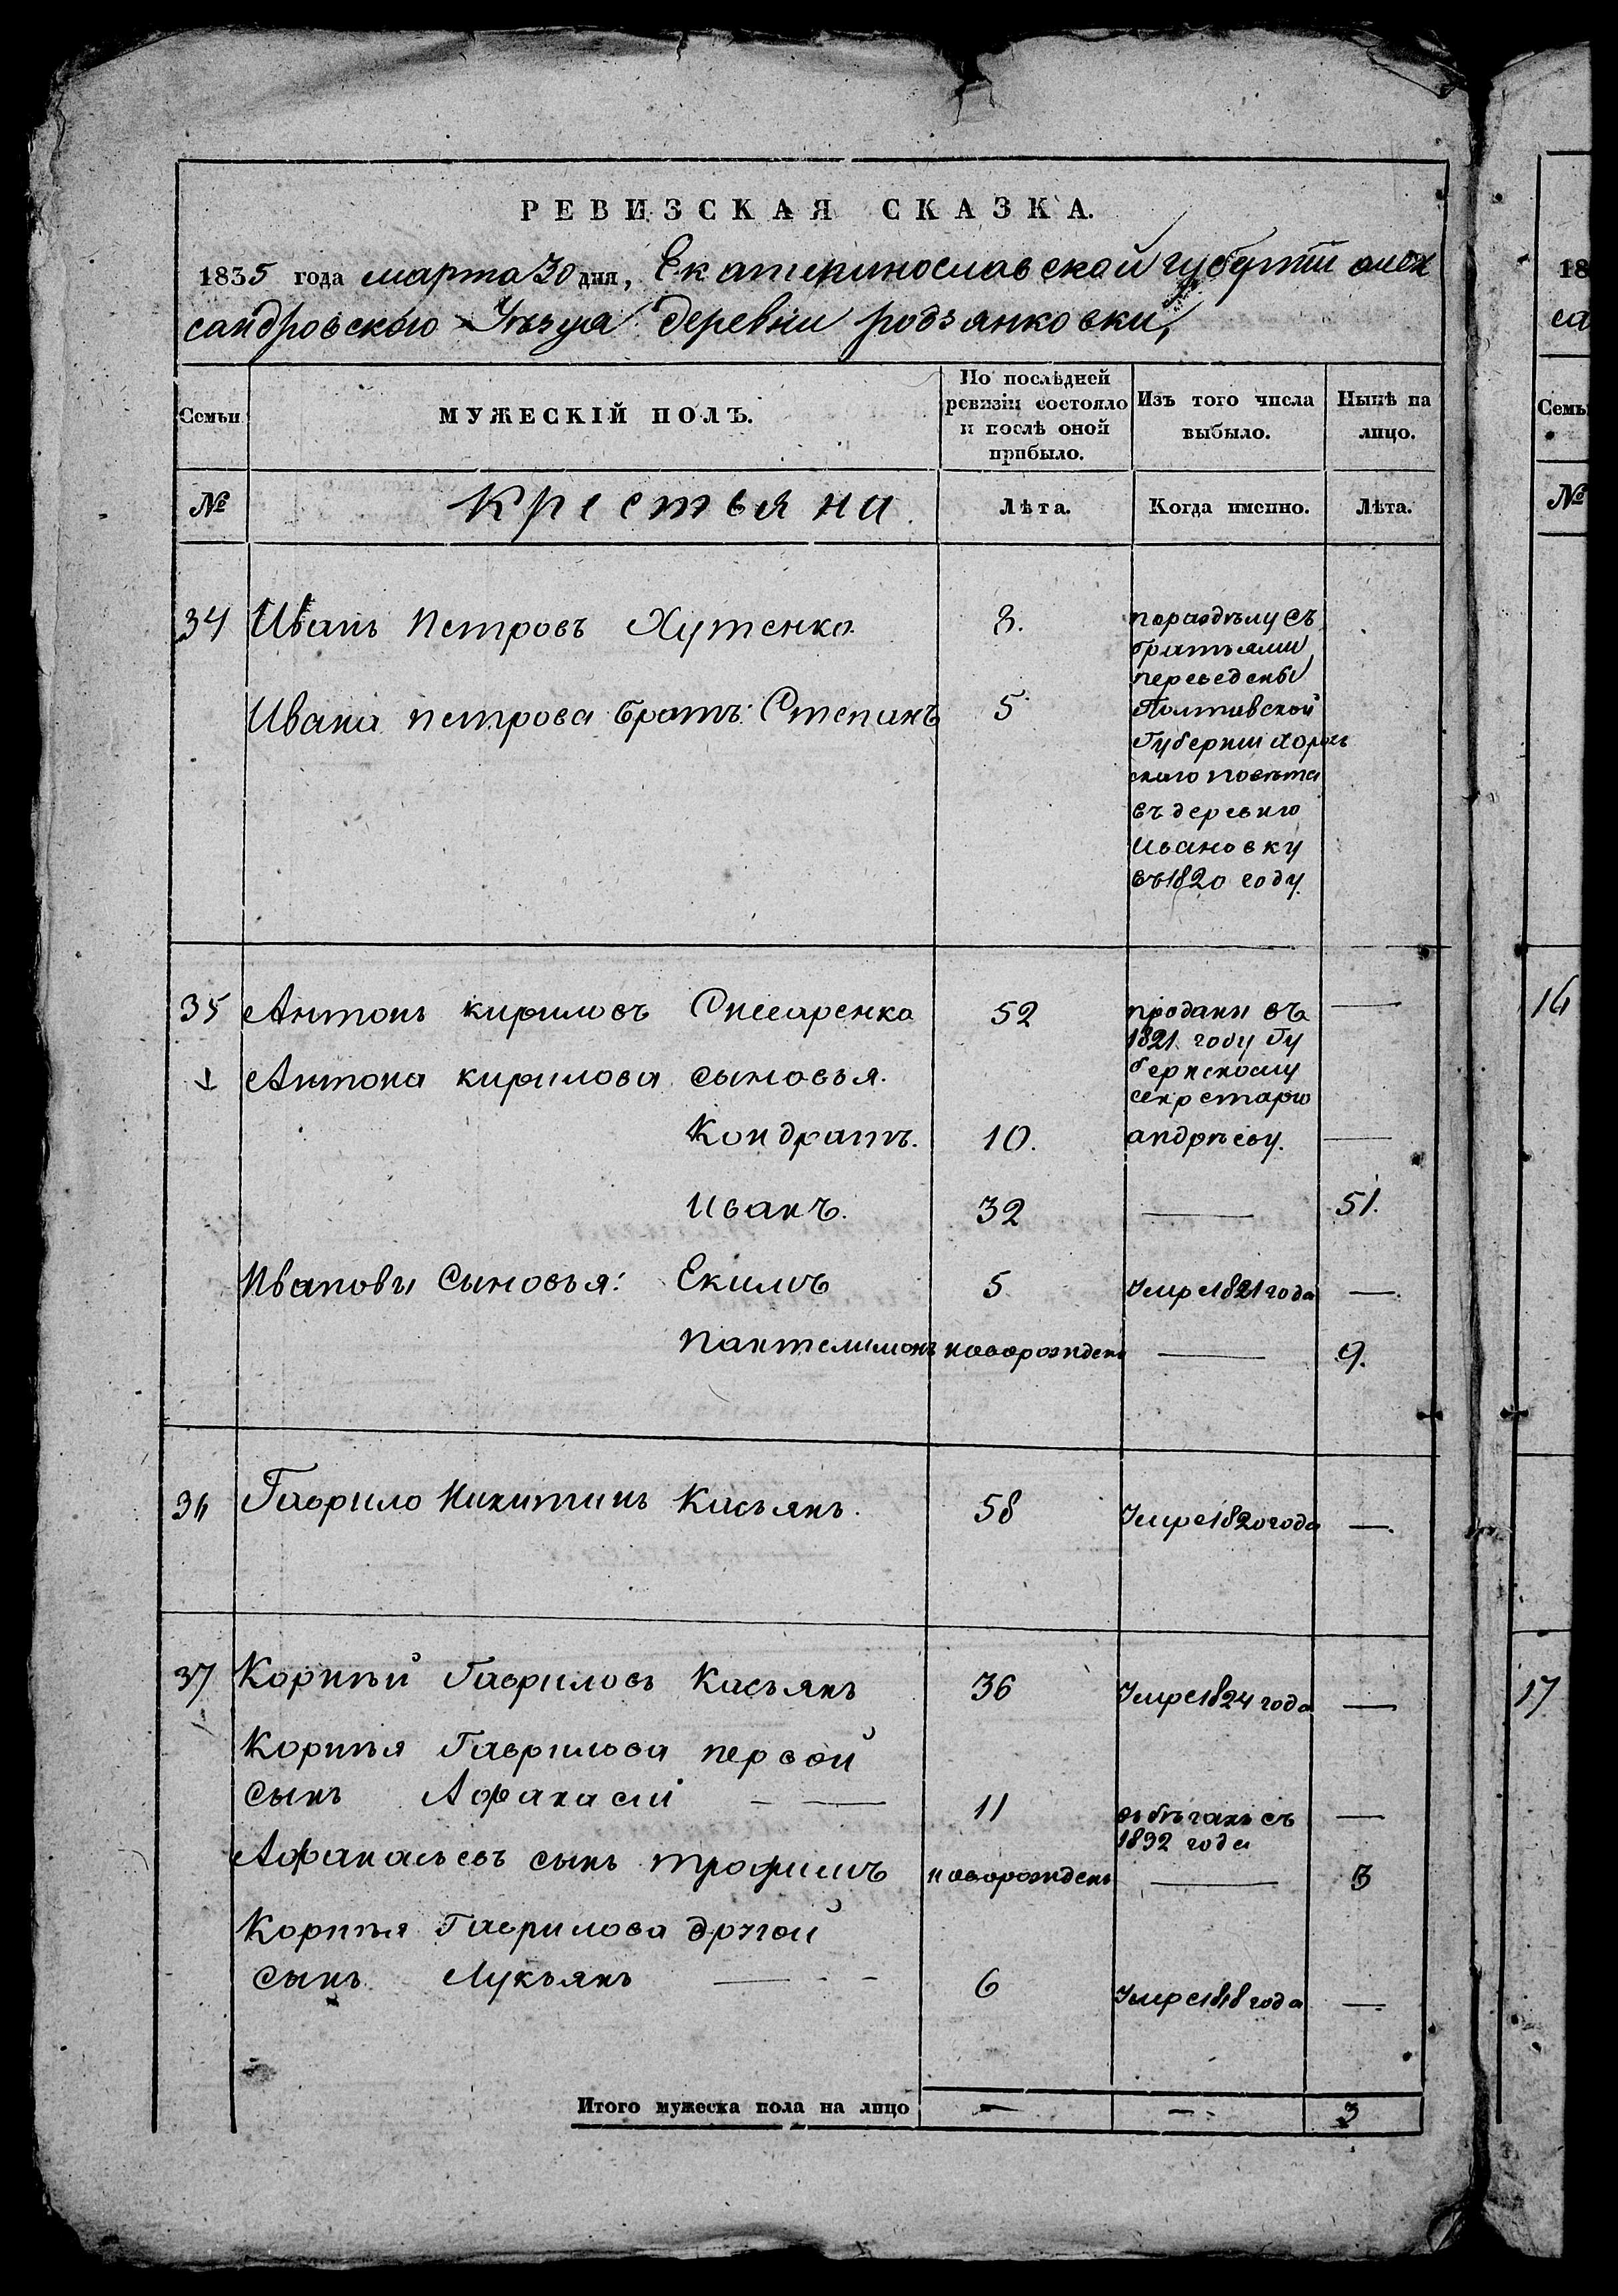 РЕВИЗСКАЯ СКАЗКА.
1835 года марта 30 дня, Екатеринославской губернии алек
сандровского Уезда деревни родзянковки,
Семьи
МУЖЕСКІЙ ПОЛЪ.
По послѣдней ревизіи состояло и послѣ оной прибыло.
Изъ того числа выбыло.
Нынѣ на лицо.
№
Крестьяна
Лѣта.
Когда именно.
Лѣта.
34 Иванъ Петровъ Хутенко. 8.
поразделу съ
братьями
переведены
Полтавской
Губернии хороль
ского повѣта
въ деревню
Ивановку
въ 1820 году.
Ивана петрова братъ: Степанъ 5
35 Антонъ кириловъ Слесаренко 52 —
проданы въ
1821 году Гу
бернскому
секретарю
андрѣеву.
Антона кирилова сыновья.
Кондратъ. 10. —
Иванъ. 32 — 51.
Ивановы Сыновья: Екимъ 5 Умре 1821 года —
Пантелимонъ новорожденъ — 9.
36 Гаврило Никитинъ Касьянъ. 58 Умре 1820 года —
37 Корнѣй Гавриловъ Касьянъ 36 Умре 1824 года —
Корнѣя Гаврилова первой
сынъ Афанасий — 11 въбѣгахъ съ —
1832 года
Афанасьевъ сынъ трофимъ новорожденъ — 3
Корнѣя Гаврилова другой
сынъ Лукьянъ — 6 Умре 1818 года —
Итого мужеска пола на лицо — — 3
18
са
Семьи
№
16
17